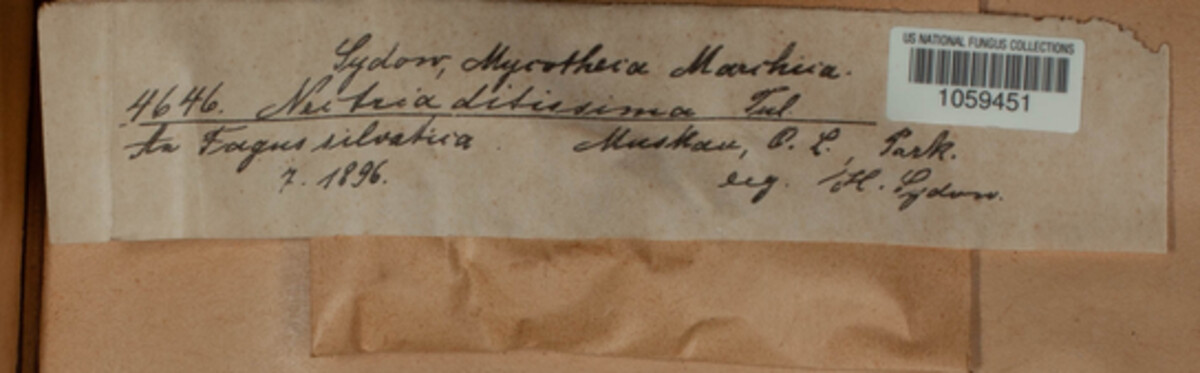 Sydow, Mycotheca Marchica.
US NATIONAL FUNGUS COLLECTIONS
1059451
4646. Nectria ditissima Tul.
An Fagus silvatica
Muskau, O. L., Park.
7. 1896.
leg. H. Sydow.